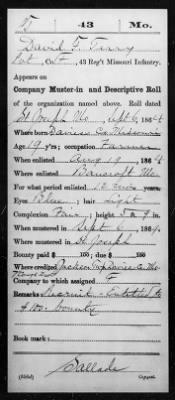 T | 43 | Mo.
David F. Terry
Pvt, Co. F, 43 Reg't Missouri Infantry.
Appears on
Company Muster-in and Descriptive Roll
of the organization named above. Roll dated
St Joseph Mo, Sept 6, 1864
Where born Daviess Co. Missouri
Age 19 y'rs; occupation Farmer
When enlisted Aug 19, 1864
Where enlisted Bancroft Mo.
For what period enlisted 12 mos years.
Eyes Blue; hair Light
Complexion Fair; height 5 ft. 9 in.
When mustered in Sept 6, 1864
Where mustered in St. Joseph
Bounty paid $ 100; due $ 100
Where credited Jackson Tp Daviess Co. Mo
Company to which assigned F
Remarks: Recruit - Entitled to
$100 bounty
Book mark:
Sallade
Copyist.